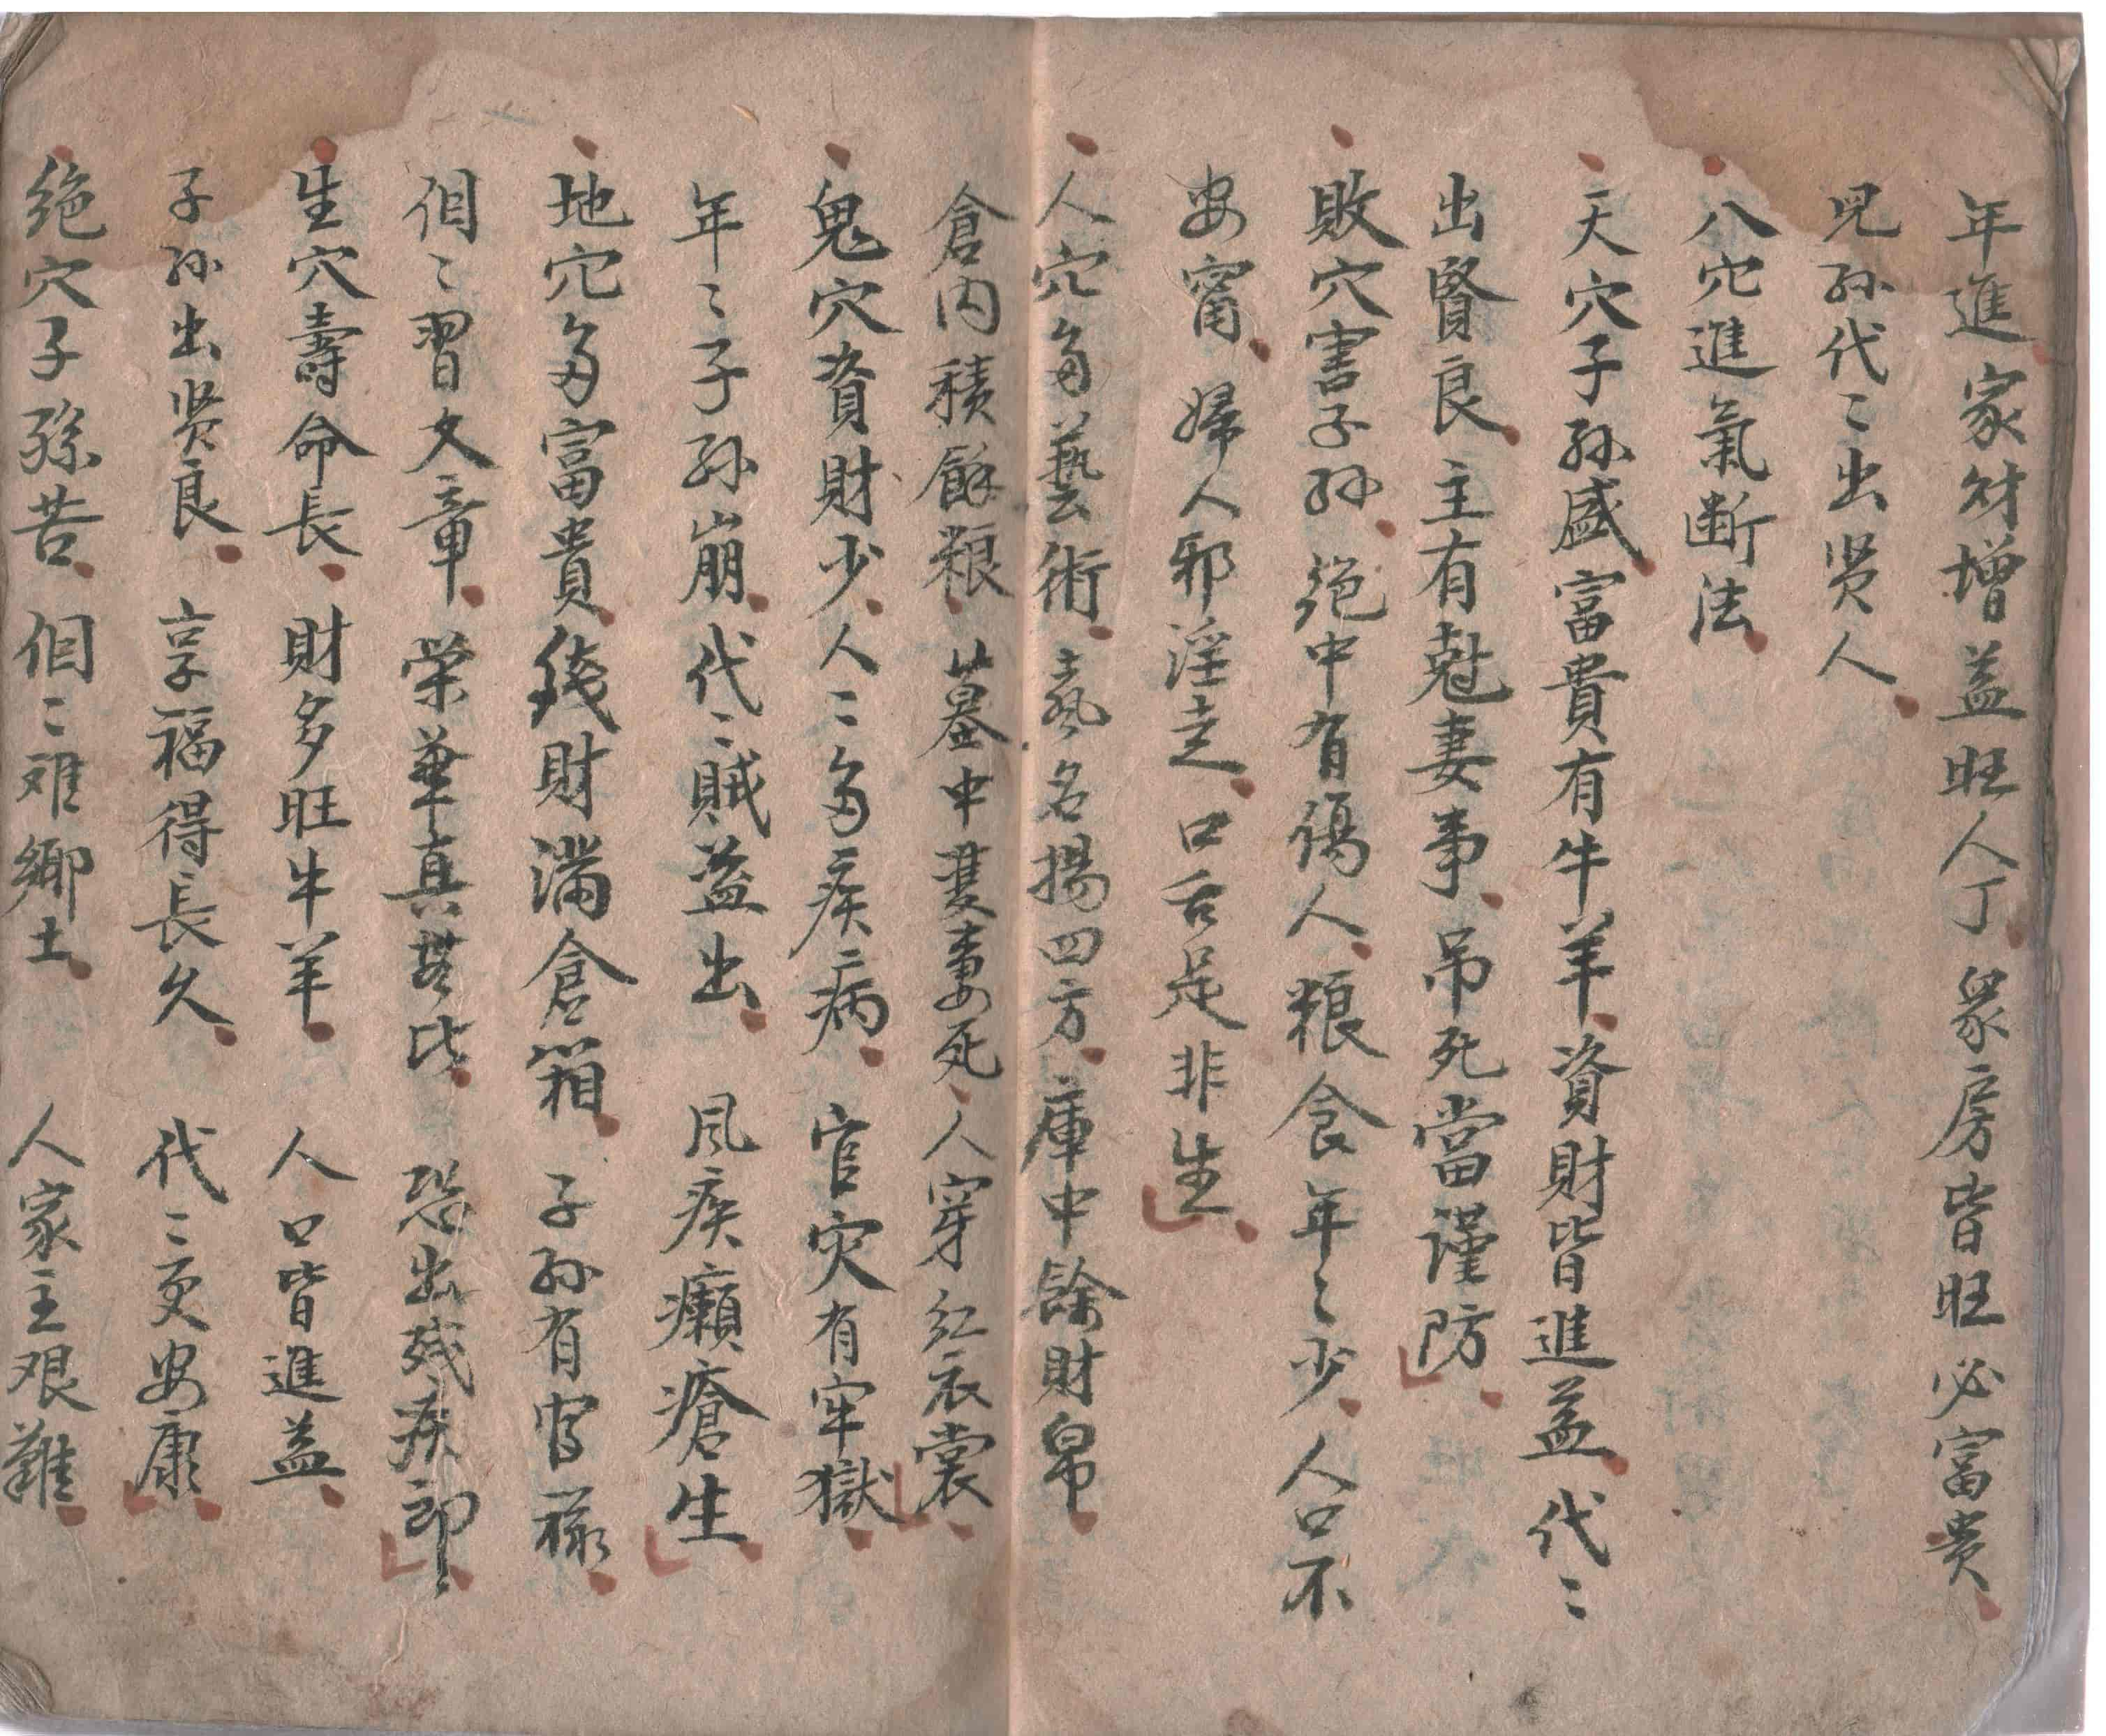 年進家財增益旺人丁眾房皆旺必富贵
児孙代〻出贤人
八穴進氣断法
天穴子孙盛富貴有牛羊資財皆進益代〻
出賢良主有尅妻事吊死當謹防
敗穴害子孙绝中有傷人粮食年〻少人口不
安甯婦人邪淫走口舌是非生
人穴多藝術藝名揚四方庫中餘財帛
倉内積餘粮墓中雙妻死人穿紅衣裳
鬼穴資財少人〻多疾病官灾有牢獄
年〻子孙崩代〻賊益出風疾癩瘡生
地穴多富貴錢財滿倉箱子孙有官禄
個〻習文章榮華真堪比恐出残疾郎
生穴壽命長財多旺牛羊人口皆進益
子孙出贤良享福得長久代〻更安康
绝穴子孫苦個〻难鄉土人家主艰難